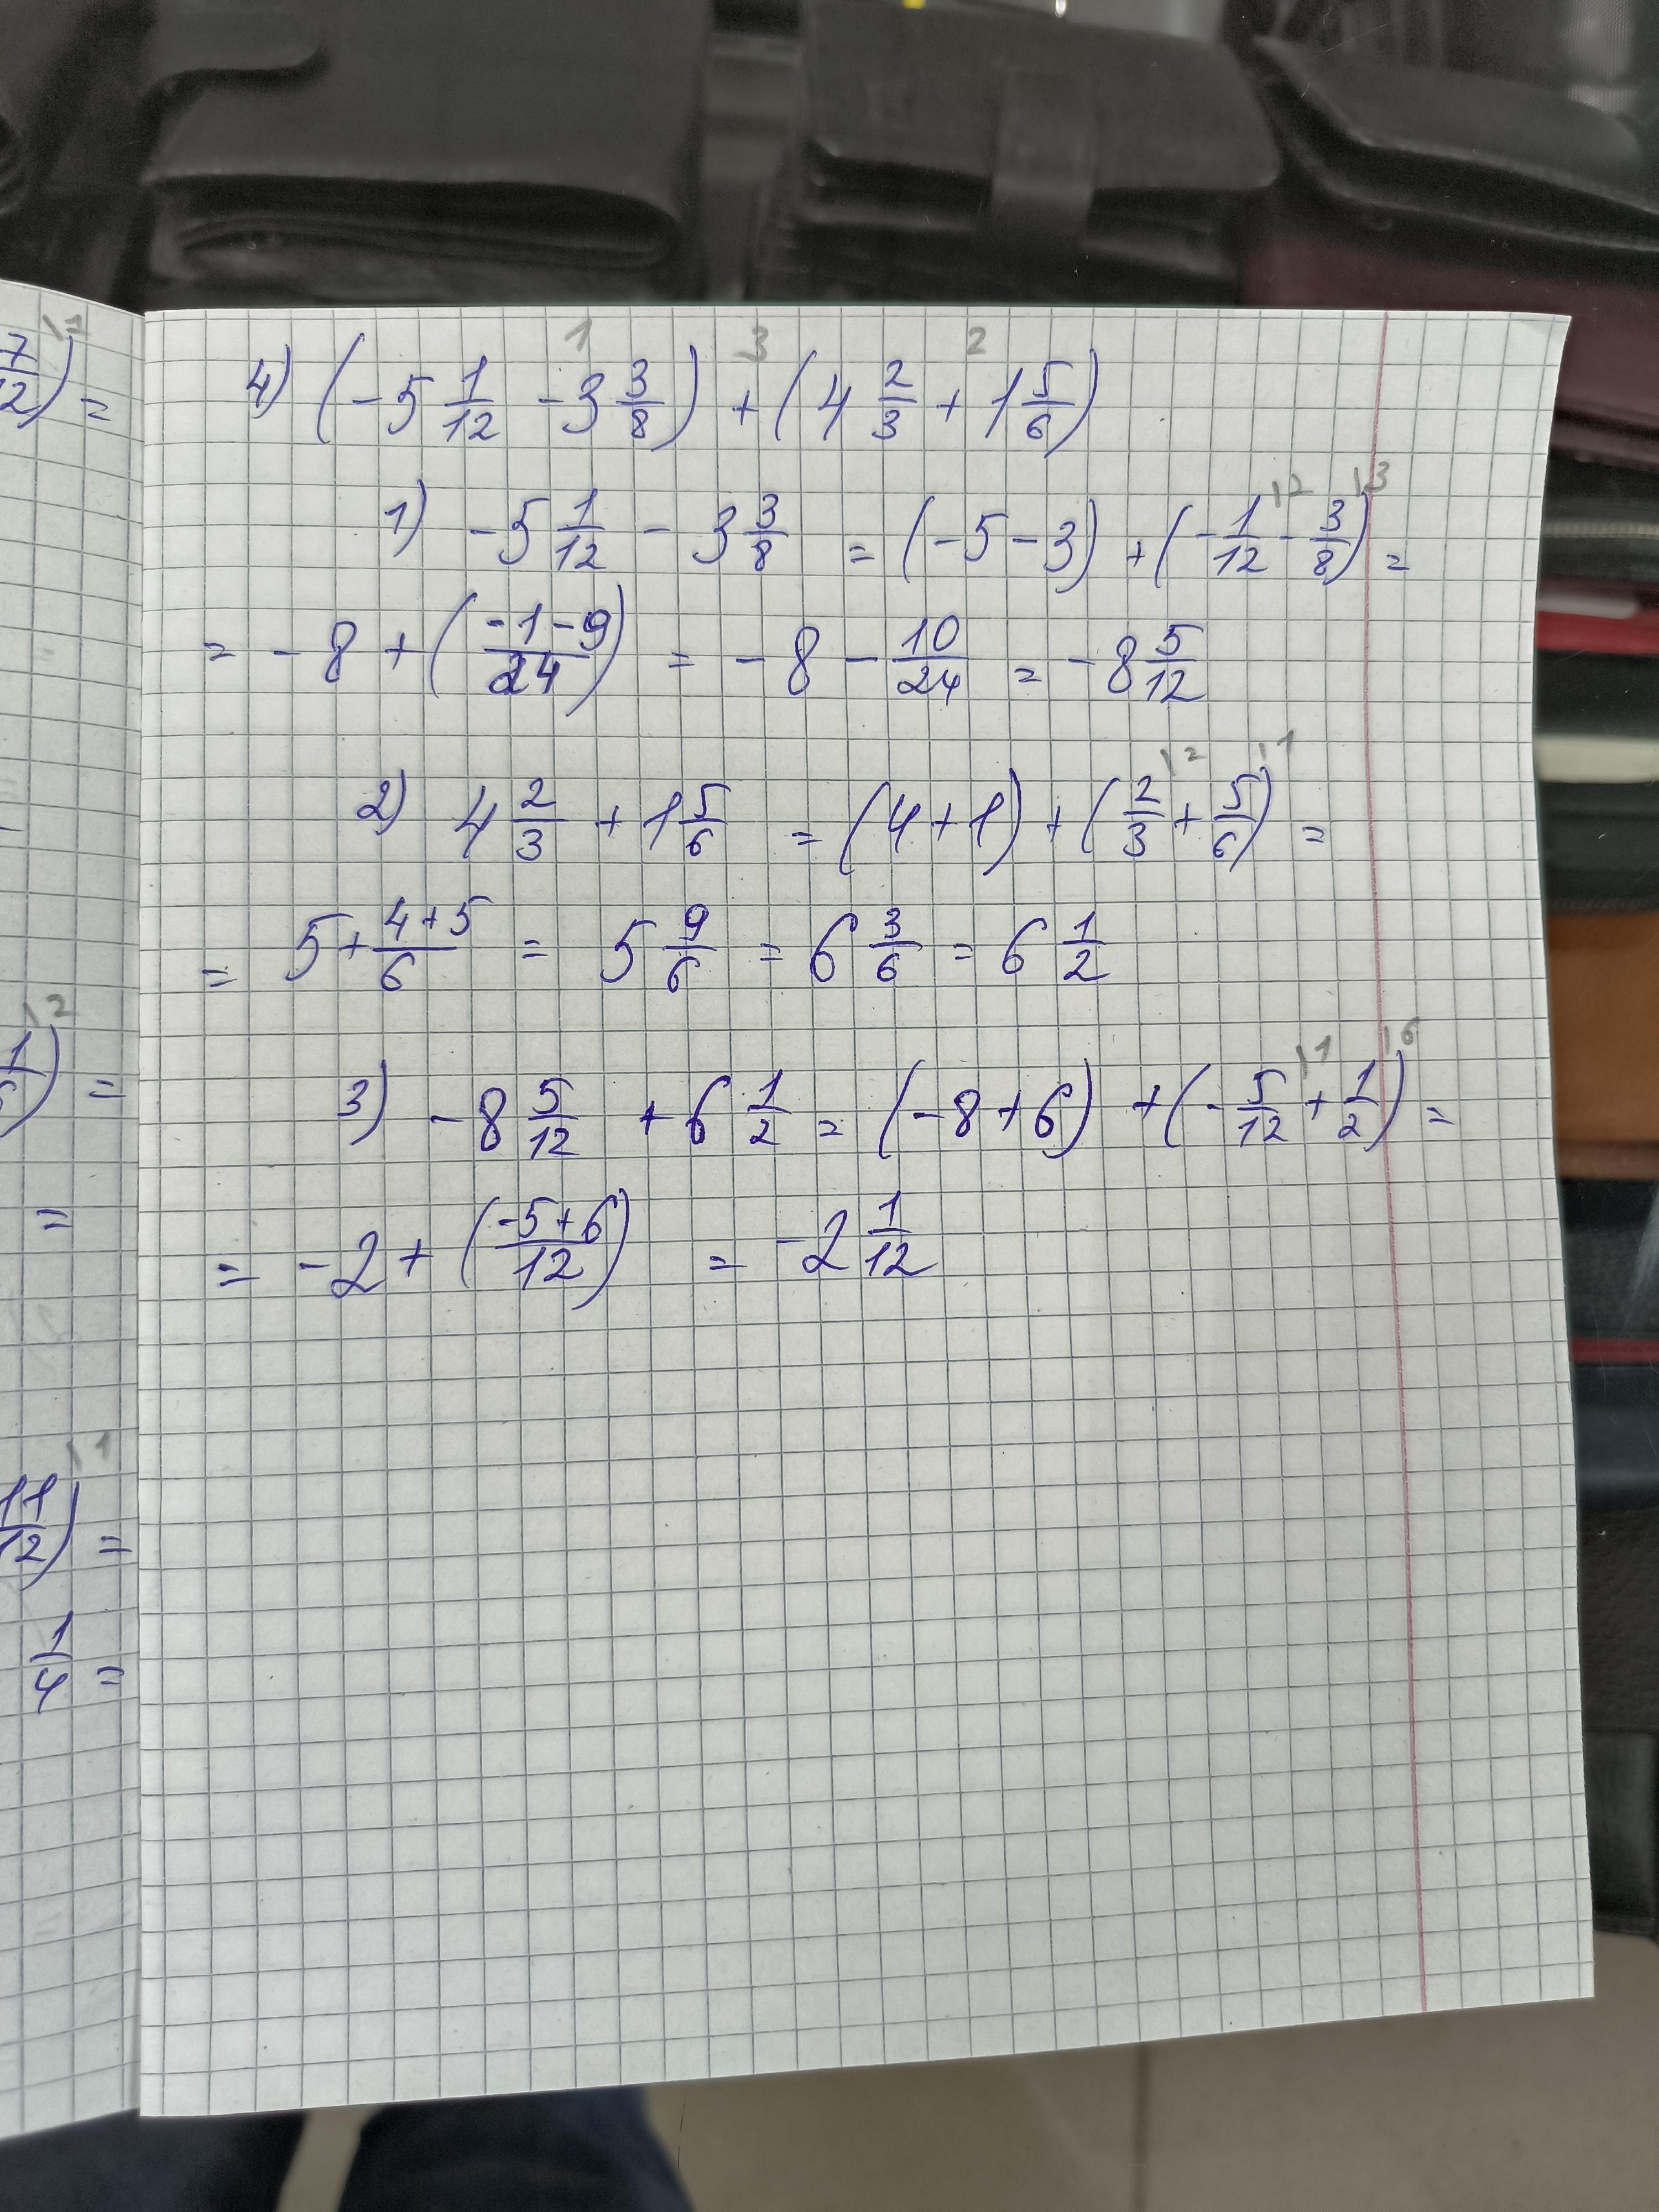 7/12)\1 =
4) (-5 1/12 - 3 3/8) + (4 2/3 + 1 5/6)
1 3 2
1) -5 1/12 - 3 3/8 = (-5-3) + (-1/12\2 - 3/8\3) =
= -8 + ((-1-9)/24) = -8 - 10/24 = -8 5/12
2) 4 2/3 + 1 5/6 = (4+1) + (2/3\2 + 5/6\1) =
= 5 + (4+5)/6 = 5 9/6 = 6 3/6 = 6 1/2
\2
) =
3) -8 5/12 + 6 1/2 = (-8+6) + (-5/12\1 + 1/2\6) =
= -2 + ((-5+6)/12) = -2 1/12
=
11/12)\1 =
1/4 =